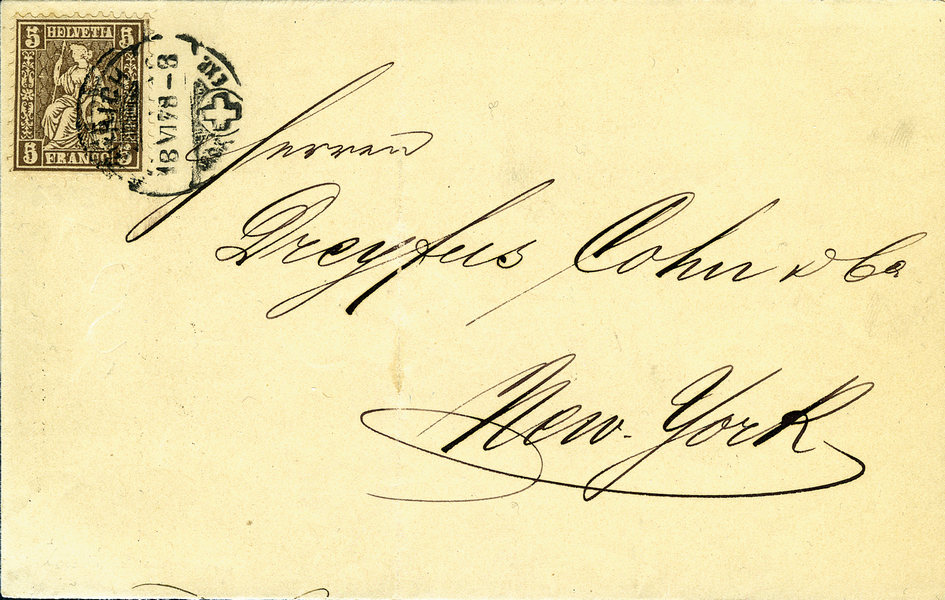 5 HELVETIA 5
5 FRANCO 5
18 VI 78-8
EXP.
Herren
Dreyfus Cohn & Co
New-York